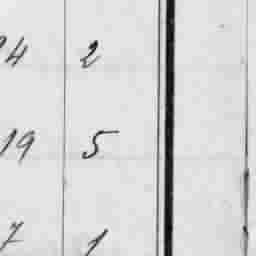 4 2
19 5
7 1